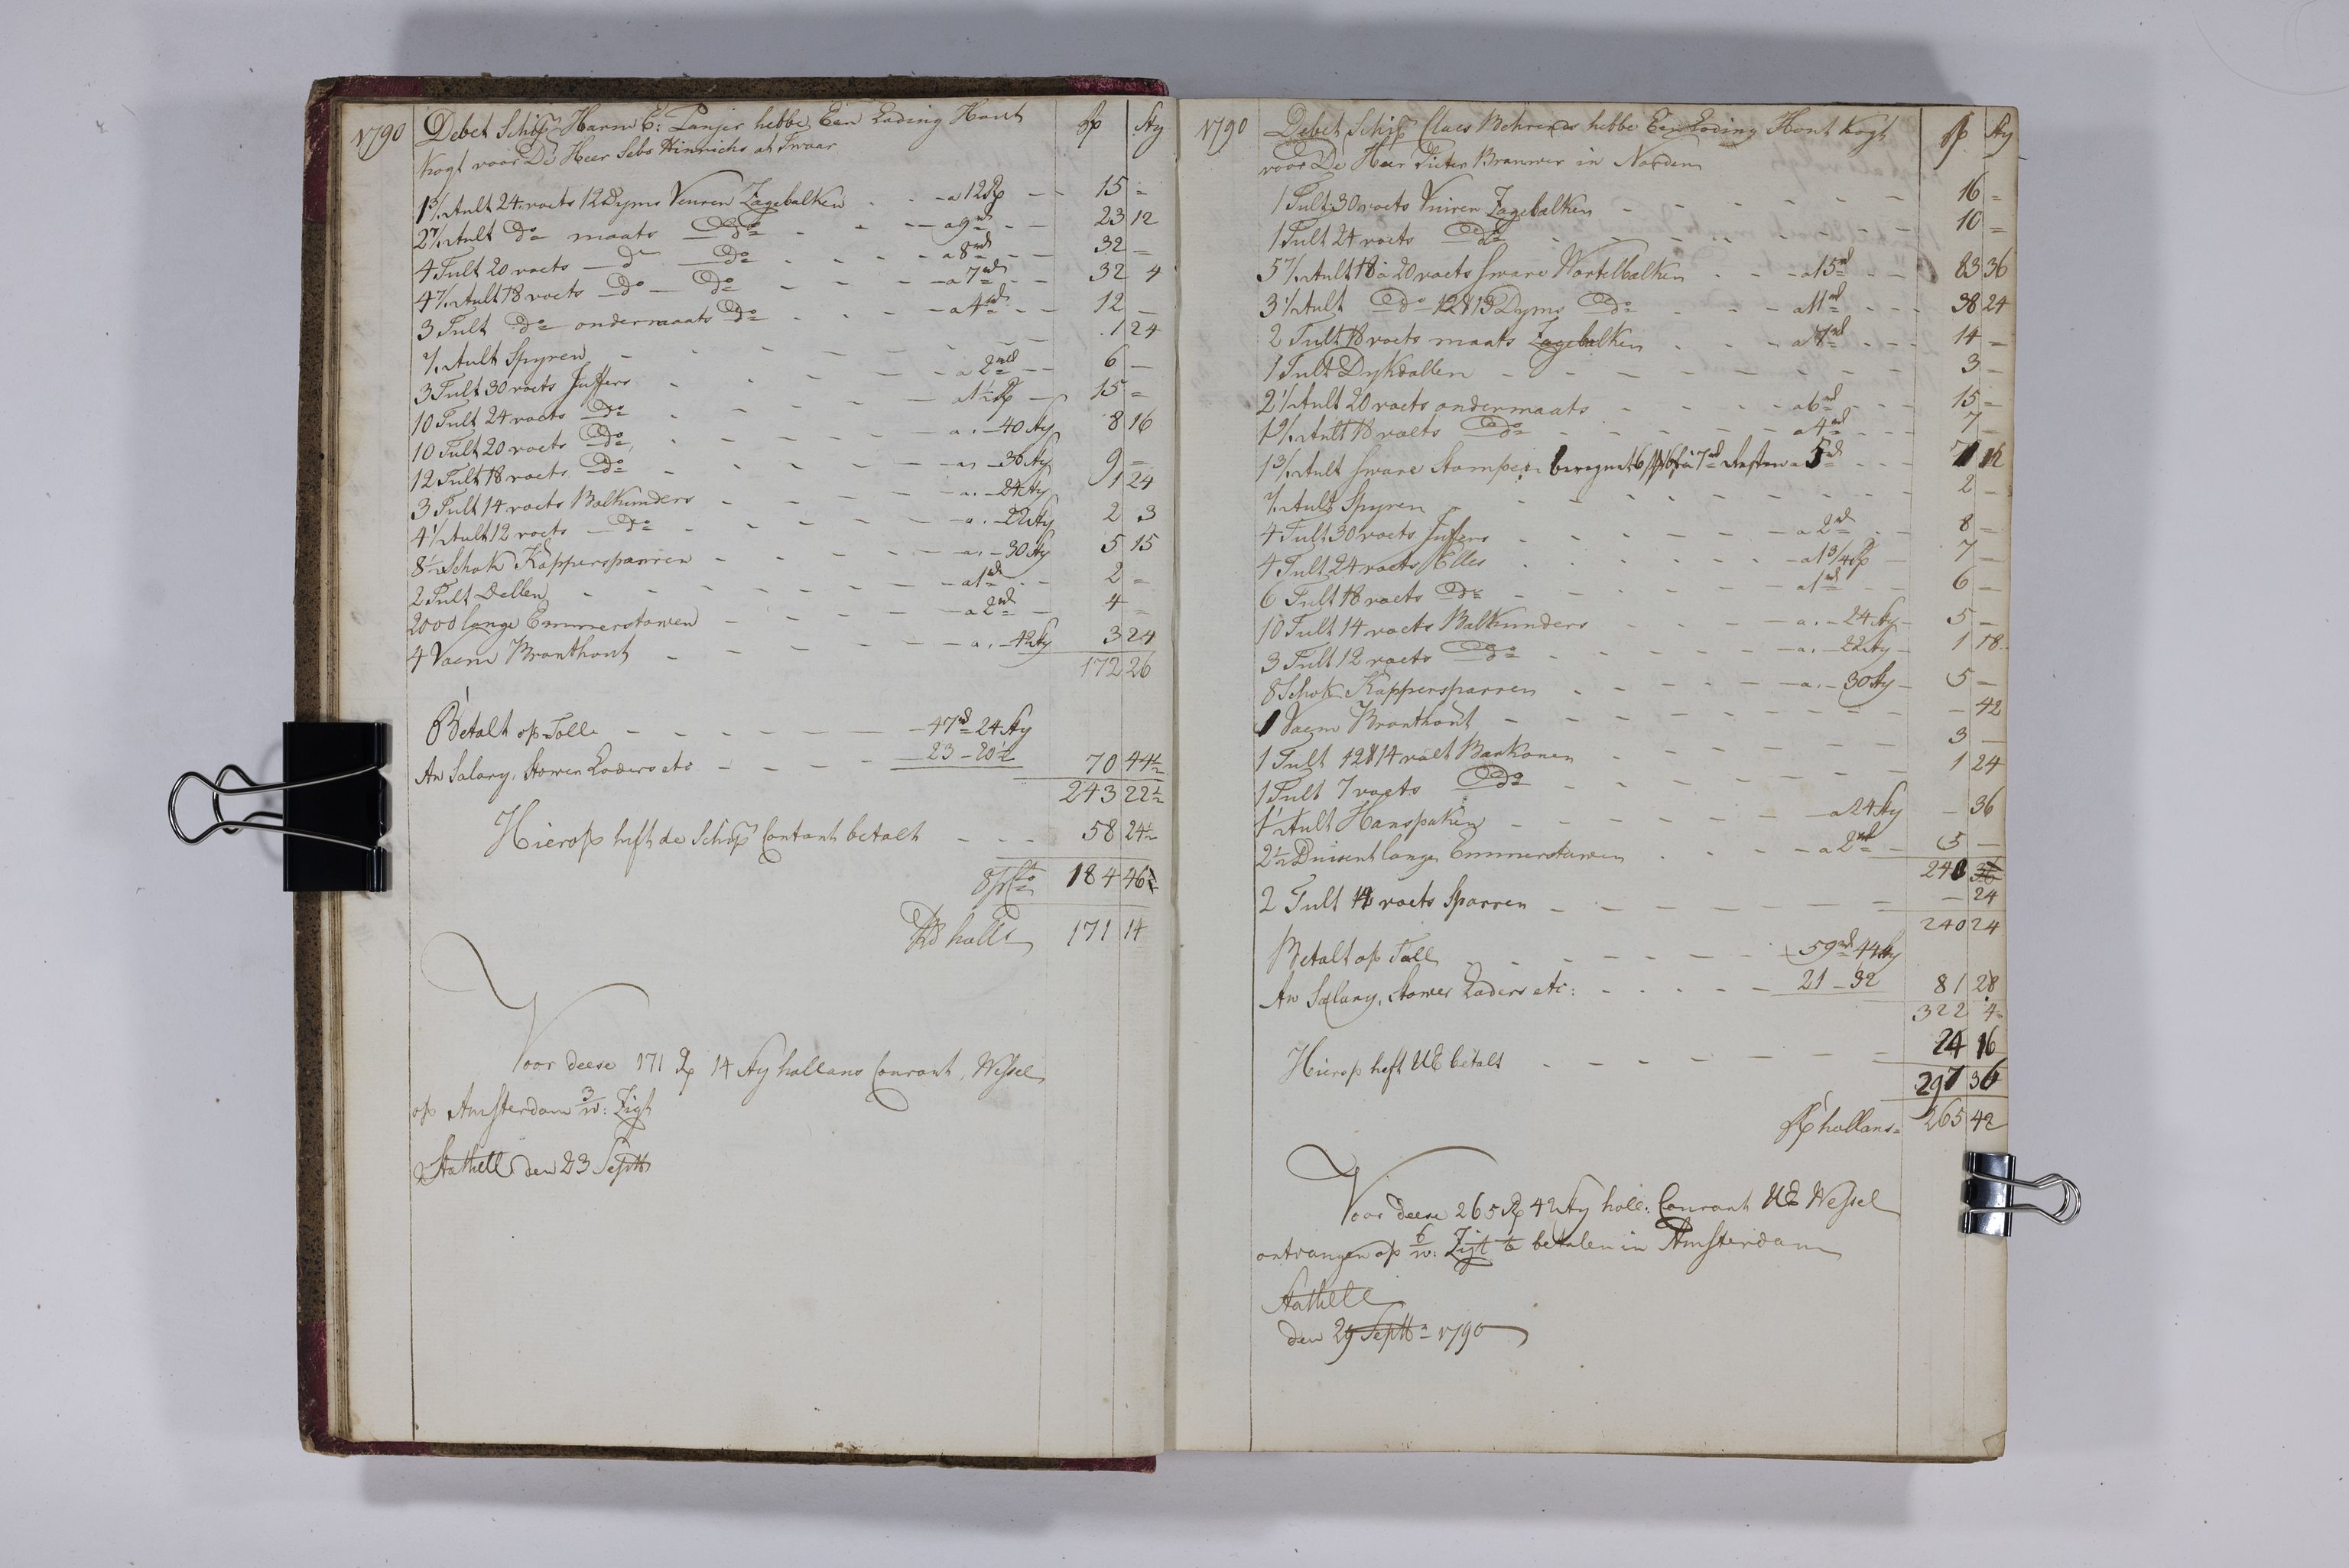 1790 Debet Schipr Harm E: Tanjer hebbe Een Lading Hout Rp Sty
kogt voor De Heer Sebo Hinrichs at Twaar
1 3/ Tult 24 voets 12 Dyms Veuren Zagebalken - - a 12 Rp - - 15 =
2 7/ Tult do maats do - - - a 9 rd - - 23 12
4 Tult 20 voets do do - - - a 8 rd - - 32 =
4 7/ Tult 18 voets do do - - - a 7 rd - - 32 4
3 Tult do ondermaats do - - - a 4 rd - - 12 -
Tult Spyren - - - - - - 1 24
3 Tult 30 voets Juffers - - - - a 2 rd - - 6 -
10 Tult 24 voets do - - - - a 1½ Rp - 15 =
10 Tult 20 voets do - - - - a . - 40 Sty 8 16
12 Tult 18 voets do - - - - a . - 36 Sty 9 =
3 Tult 14 voets Balkunders - - - - a . - 24 Sty 1 24
4 1/ Tult 12 voets do - - - - a . - 22 Sty 2 3
8½ Schok Kappersparren - - - - a . - 30 Sty 5 15
2 Tult Dellen - - - - a 1 rd - - 2 =
2000 lange Emmerstawen - - - - a 2 rd - 4 =
4 Vaem Branthout - - - - a . - 42 Sty 3 24
172 26
Betalt op Toll - - - - - 47 rd 24 Sty
An Salary, Stower Loders etc - - - - 23 - 20½ 70 44½
243 22½
Hierop heft de Schipr Contant betalt - - - 58 24½
184 46
Rp holl 171 14
Voor deese 171 Rp 14 Sty hollans Courant, Wessel
op Amsterdam 3/w: Zigt
Stathell den 23 Septb
1790 Debet Schipr Claes Behrends hebbe Een Loding Hout kogt Rp Sty
voor De Heer Pieter Brauwer in Norden
1 Tult 30 voets Vuiren Zagebalken - - - - - 16 =
1 Tult 24 voets do - - - - - 10 =
5 7/ Tult 18 a 20 voets sware Wortelbalken - - - a 15 rd - - 83 36
3 1/ Tult do 12 a 13 Dyms do - - - a 11 rd - - - 38 24
2 Tult 18 voets maats Zagebalken - - - a 7 rd - - - 14 =
1 Tult Dykdallen - - - - - - 3 -
2 1/ Tult 20 voets ondermaats - - - - a 6 rd - - 15 =
1 9/ Tult 18 voets do - - - - a 4 rd - - - 7 -
1 3/ Tult sware Stompen a 5 rd - - - 7 12
Tult Spyren - - - - - - - 2 -
4 Tult 30 voets Juffers - - - - - a 2 rd - - 8 =
4 Tult 24 voets Elles - - - - - a 1 3/4 Rp - 7 -
6 Tult 18 voets do - - - - - a 1 rd - - 6 -
10 Tult 14 voets Balkunders - - - - a . - 24 Sty - 5 -
3 Tult 12 voets do - - - - - a . - 22 Sty - 1 18
8 Schok Kappersparren - - - - - a . - 30 Sty - 5 -
1 Vaem Branthout - - - - - - - - 42
1 Tult 12 a 14 voet Barkonen - - - - - 3 -
1 Tult 7 voets do - - - - - 1 24
1 1/ Tult Hanspaken - - - - - a 24 Sty - 36
2½ Duisent lange Emmerstawen - - - a 2 rd - 5 -
240
2 Tult 14 voets Sparren - - - - - - 24
240 24
Betalt op Toll - - - - - - 59 rd 44 Sty
An Salary, Stower Loders etc: - - - - 21 - 32 81 28
322 4
Hierop heft UE betalt - - - - - - 24 16
297 36
Rp hollans = 265 42
Voor deese 265 Rp 42 Sty holl: Courant UE Wessel
ontvangen op 6/w: Zigt te betalen in Amsterdam
Stathelle
den 29 Septb 1790